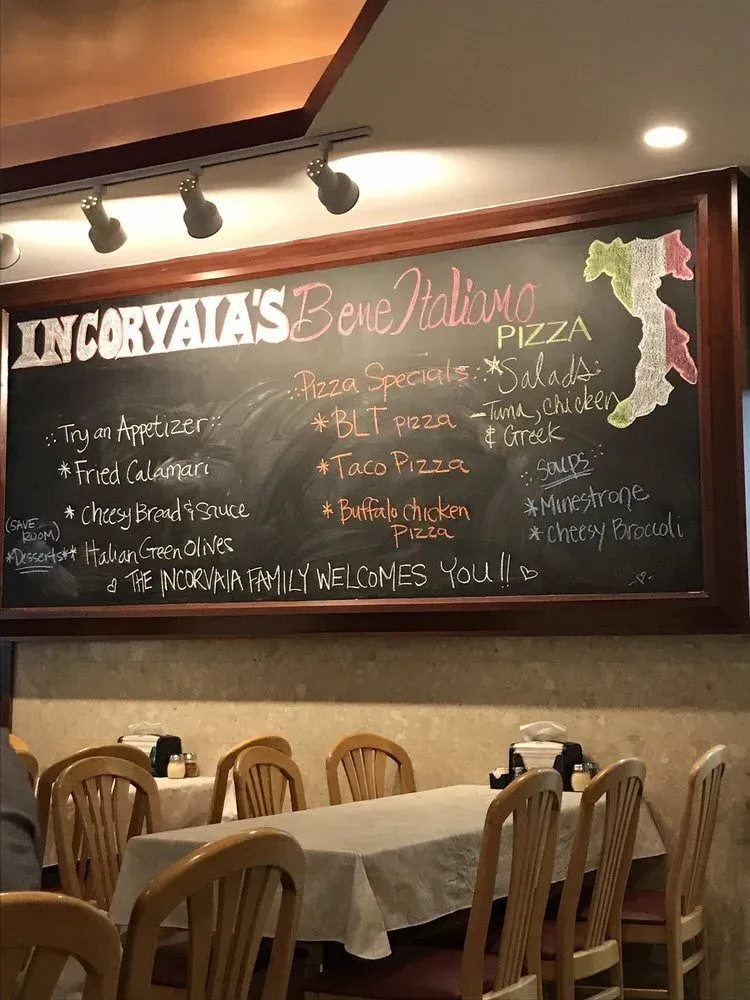 INCORVAIA'S Bene Italiano
PIZZA
Try an Appetizer
*Fried Calamari
*Cheesy Bread & Sauce
*Italian Geen Olives
(SAVE
ROOM)
*Desserts*
Pizza Specials
*BLT pizza
*Taco Pizza
*Buffalo chicken
Pizza
*Salads:
-Tuna, chicken
& Greek
Soups
*Minestrone
*cheesy Broccoli
THE INCORVAIA FAMILY WELCOMES YOU!!